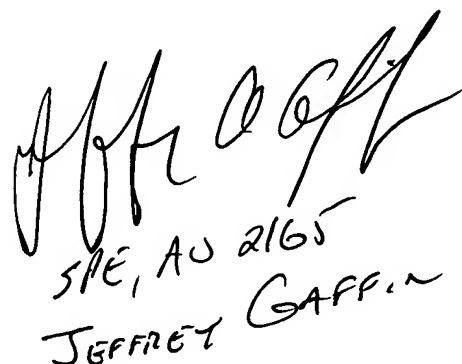 SPE, AU 2165
JEFFREY GAFFIN